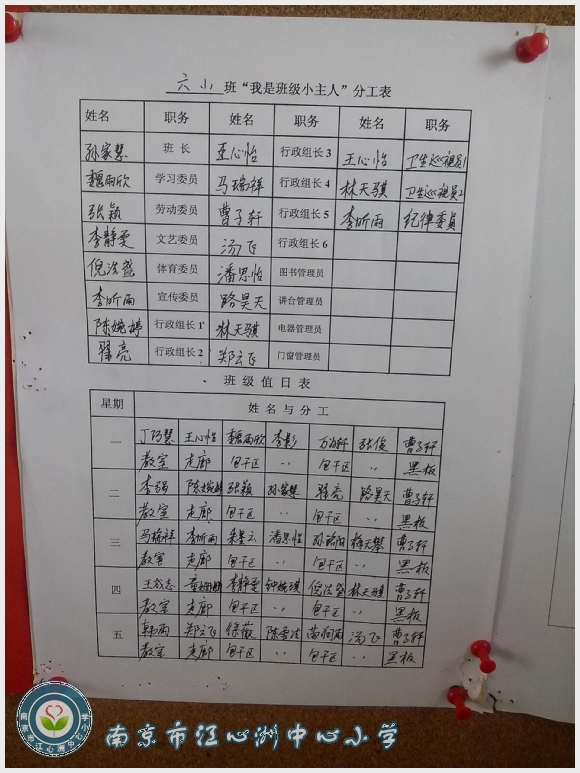 六 小 班“我是班级小主人”分工表
姓名 职务 姓名 职务 姓名 职务
孙家慧 班 长 王心怡 行政组长 3 王心怡 卫生巡视员1
魏雨欣 学习委员 马瑞祥 行政组长 4 林天骐 卫生巡视员2
张颖 劳动委员 曹子轩 行政组长 5 李昕雨 纪律委员
李静雯 文艺委员 汤飞 行政组长 6
倪浩盛 体育委员 潘思怡 图书管理员
李昕雨 宣传委员 路昊天 讲台管理员
陈婉婷 行政组长 1 林天骐 电器管理员
翟亮 行政组长 2 郑云飞 门窗管理员
班 级 值 日 表
星期 姓 名 与 分 工
一 王心怡 魏雨欣 李影 张俊 曹子轩
教室 走廊 包干区 〃 包干区 〃 黑板
二 李强 陈婉婷 张颖 孙家慧 翟亮 路昊天 曹子轩
教室 走廊 包干区 〃 包干区 〃 黑板
三 马瑞祥 李昕雨 潘思怡 曹子轩
教室 走廊 包干区 〃 包干区 〃 黑板
四 李静雯 倪浩盛 林天骐 曹子轩
教室 走廊 包干区 〃 包干区 〃 黑板
五 韩雨 郑云飞 徐薇 汤飞 曹子轩
教室 走廊 包干区 〃 包干区 〃 黑板
南京市江心洲中心小学
南京市江心洲中心小学